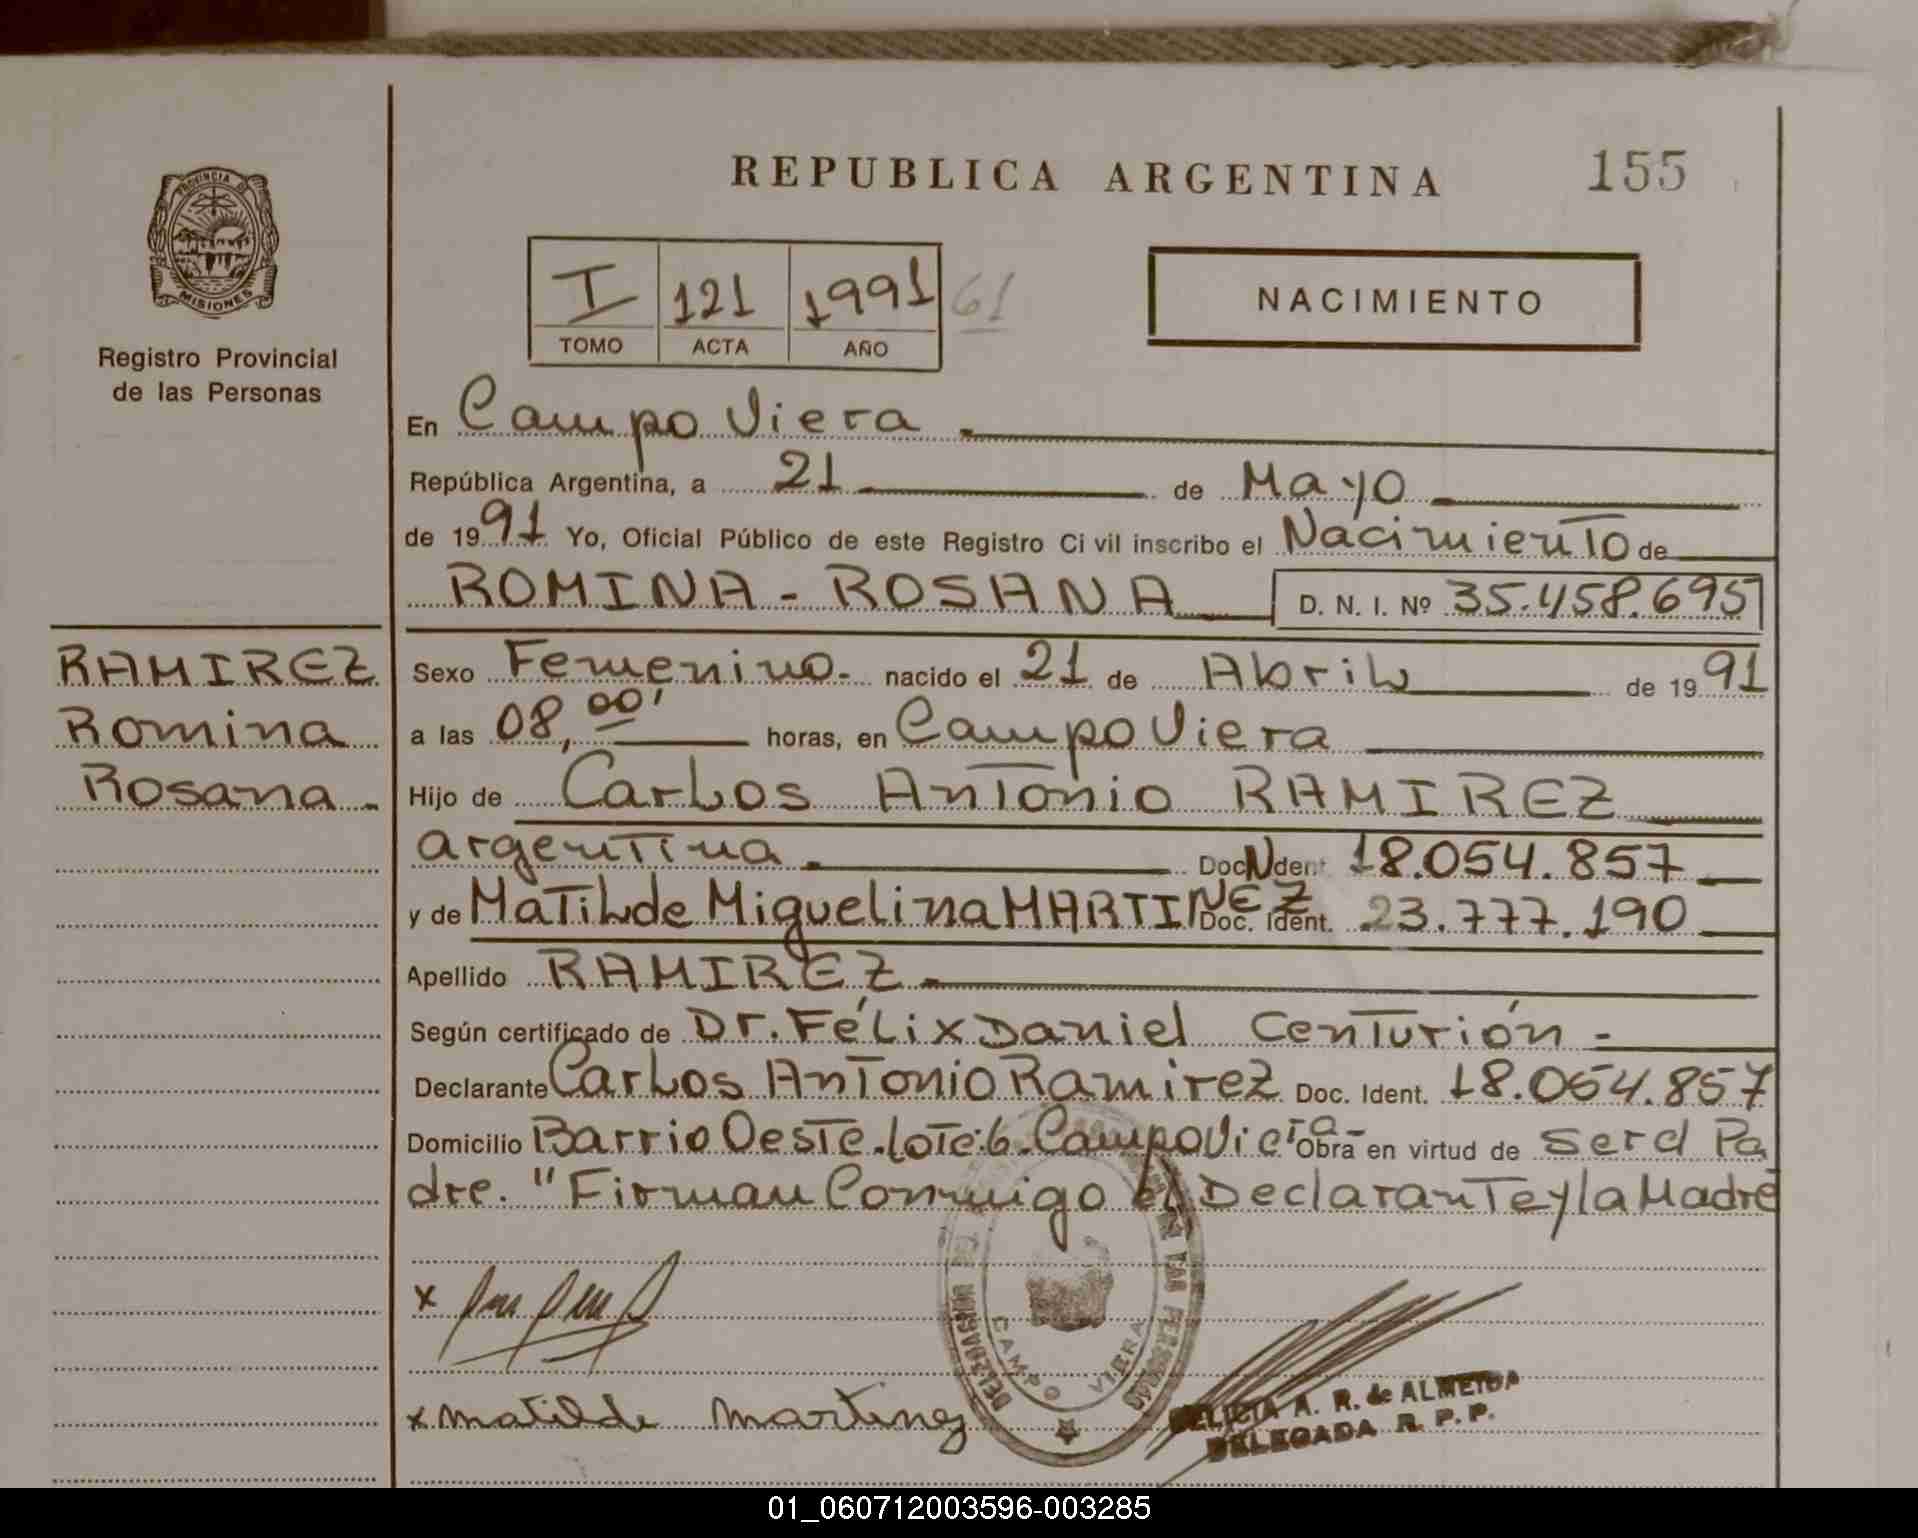 REPUBLICA ARGENTINA
155
PROVINCIA DE
MISIONES
Registro Provincial
de las Personas
I 121 1991 61
TOMO ACTA AÑO
NACIMIENTO
En Campo Viera
República Argentina, a 21 de Mayo
de 1991 Yo, Oficial Público de este Registro Ci vil inscribo el Nacimiento de
ROMINA - ROSANA D. N. I. Nº 35.458.695
RAMIREZ
Romina
Rosana.
Sexo Femenino. nacido el 21 de Abril de 1991
a las 08,00' horas, en Campo Viera
Hijo de Carlos Antonio RAMIREZ
argentina. Doc. Ident. 18.054.857
y de Matilde Miguelina MARTINEZ Doc. Ident. 23.777.190
Apellido RAMIREZ
Según certificado de Dr. Félix Daniel Centurión
Declarante Carlos Antonio Ramirez Doc. Ident. 18.054.857
Domicilio Barrio Oeste. Lote:6. Campo Viera Obra en virtud de ser el Pa
dre. "Firman Conmigo el Declarante y la Madre
x
x matilde martinez
CAMPO VIERA
DELICIA A. R. de ALMEIDA
DELEGADA R. P. P.
01_060712003596-003285